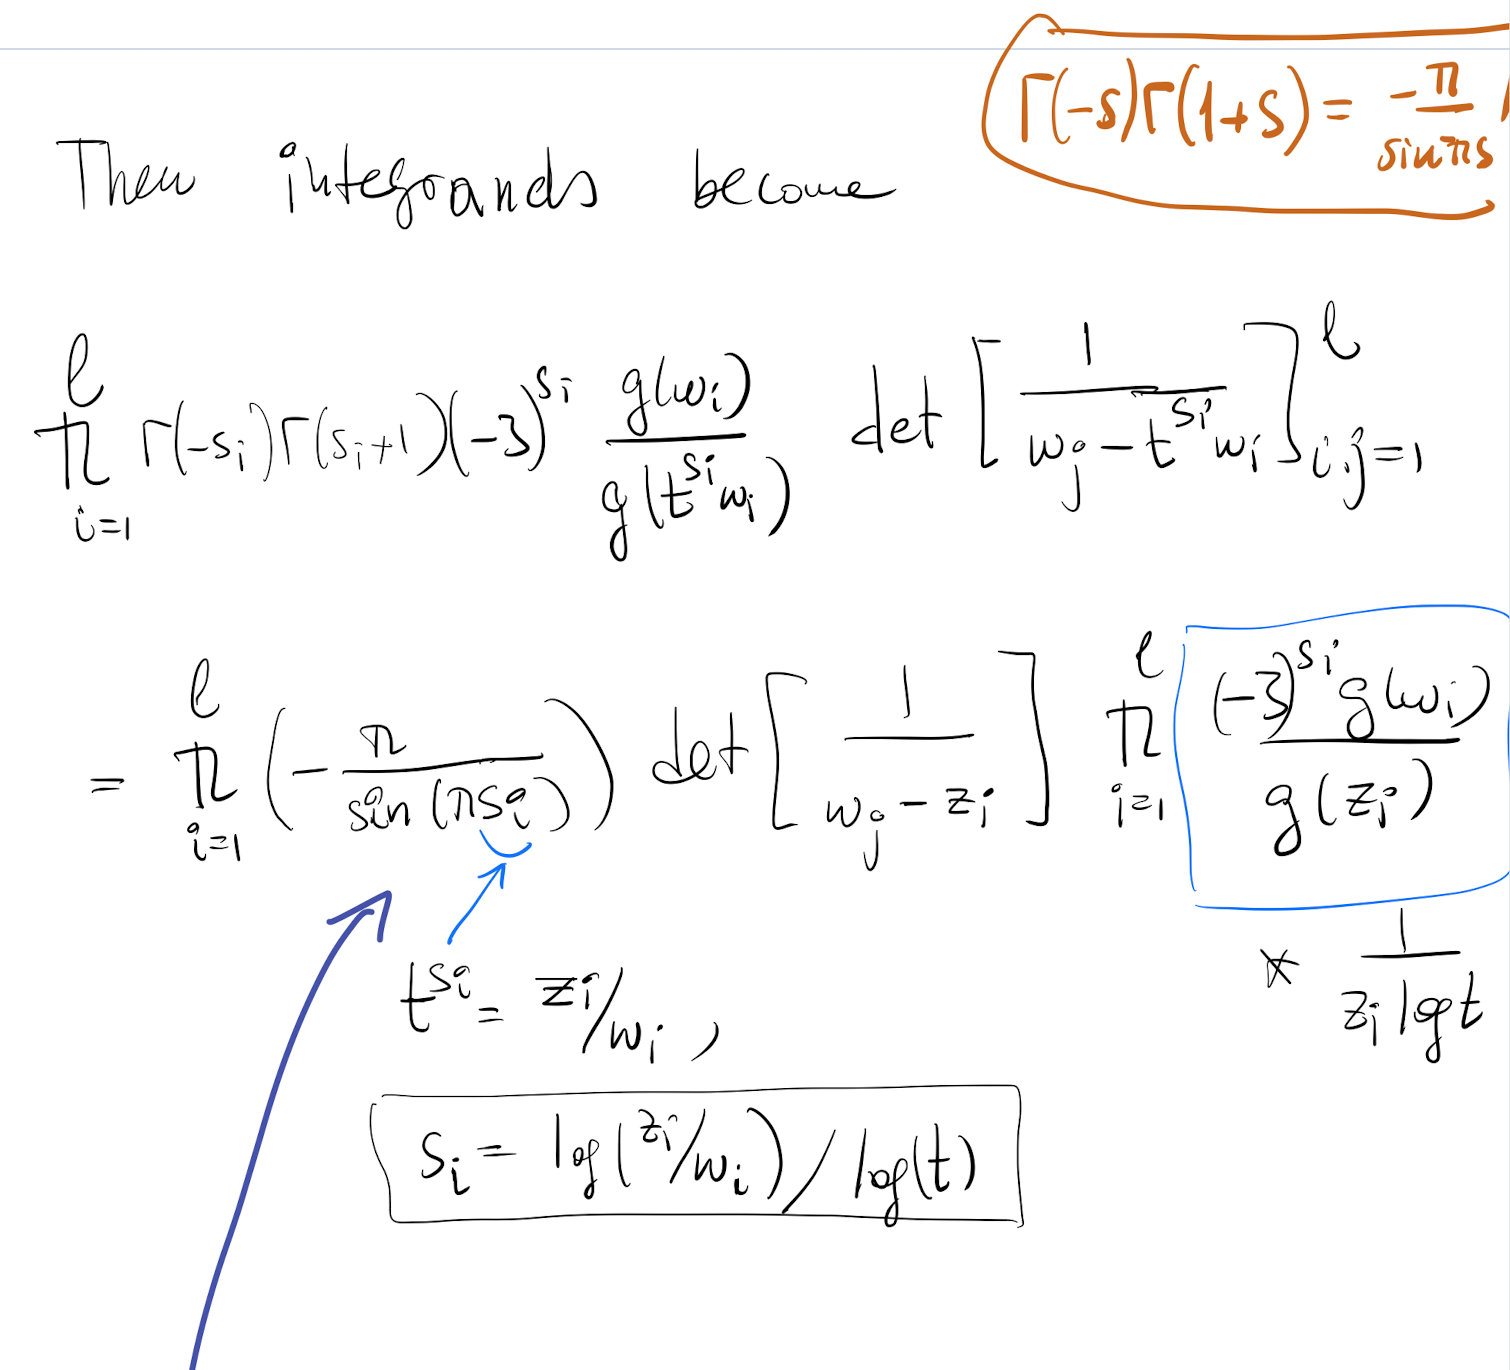 Γ(-s)Γ(1+s) = -π/sin πs
Then integrands become
∏_{i=1}^{ℓ} Γ(-s_i)Γ(s_i+1)(-3)^{s_i} g(w_i)/g(t^{s_i}w_i) det[1/(w_j - t^{s_i}w_i)]_{i,j=1}^{ℓ}
= ∏_{i=1}^{ℓ} (-π/sin(πs_i)) det[1/(w_j - z_i)] ∏_{i=1}^{ℓ} (-3)^{s_i} g(w_i)/g(z_i)
* 1/(z_i log t)
t^{s_i} = z_i/w_i,
s_i = log(z_i/w_i)/log(t)